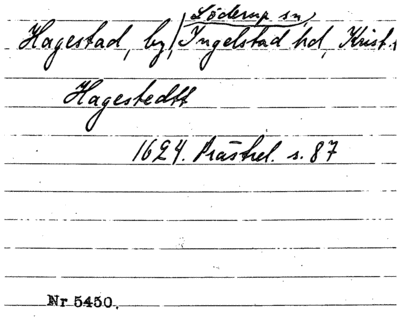 Löderup sn,
Hagestad, by, Ingelstad hd, Krist.
Hagestedtt
1624. Prästrel. s. 87
Nr 5450.